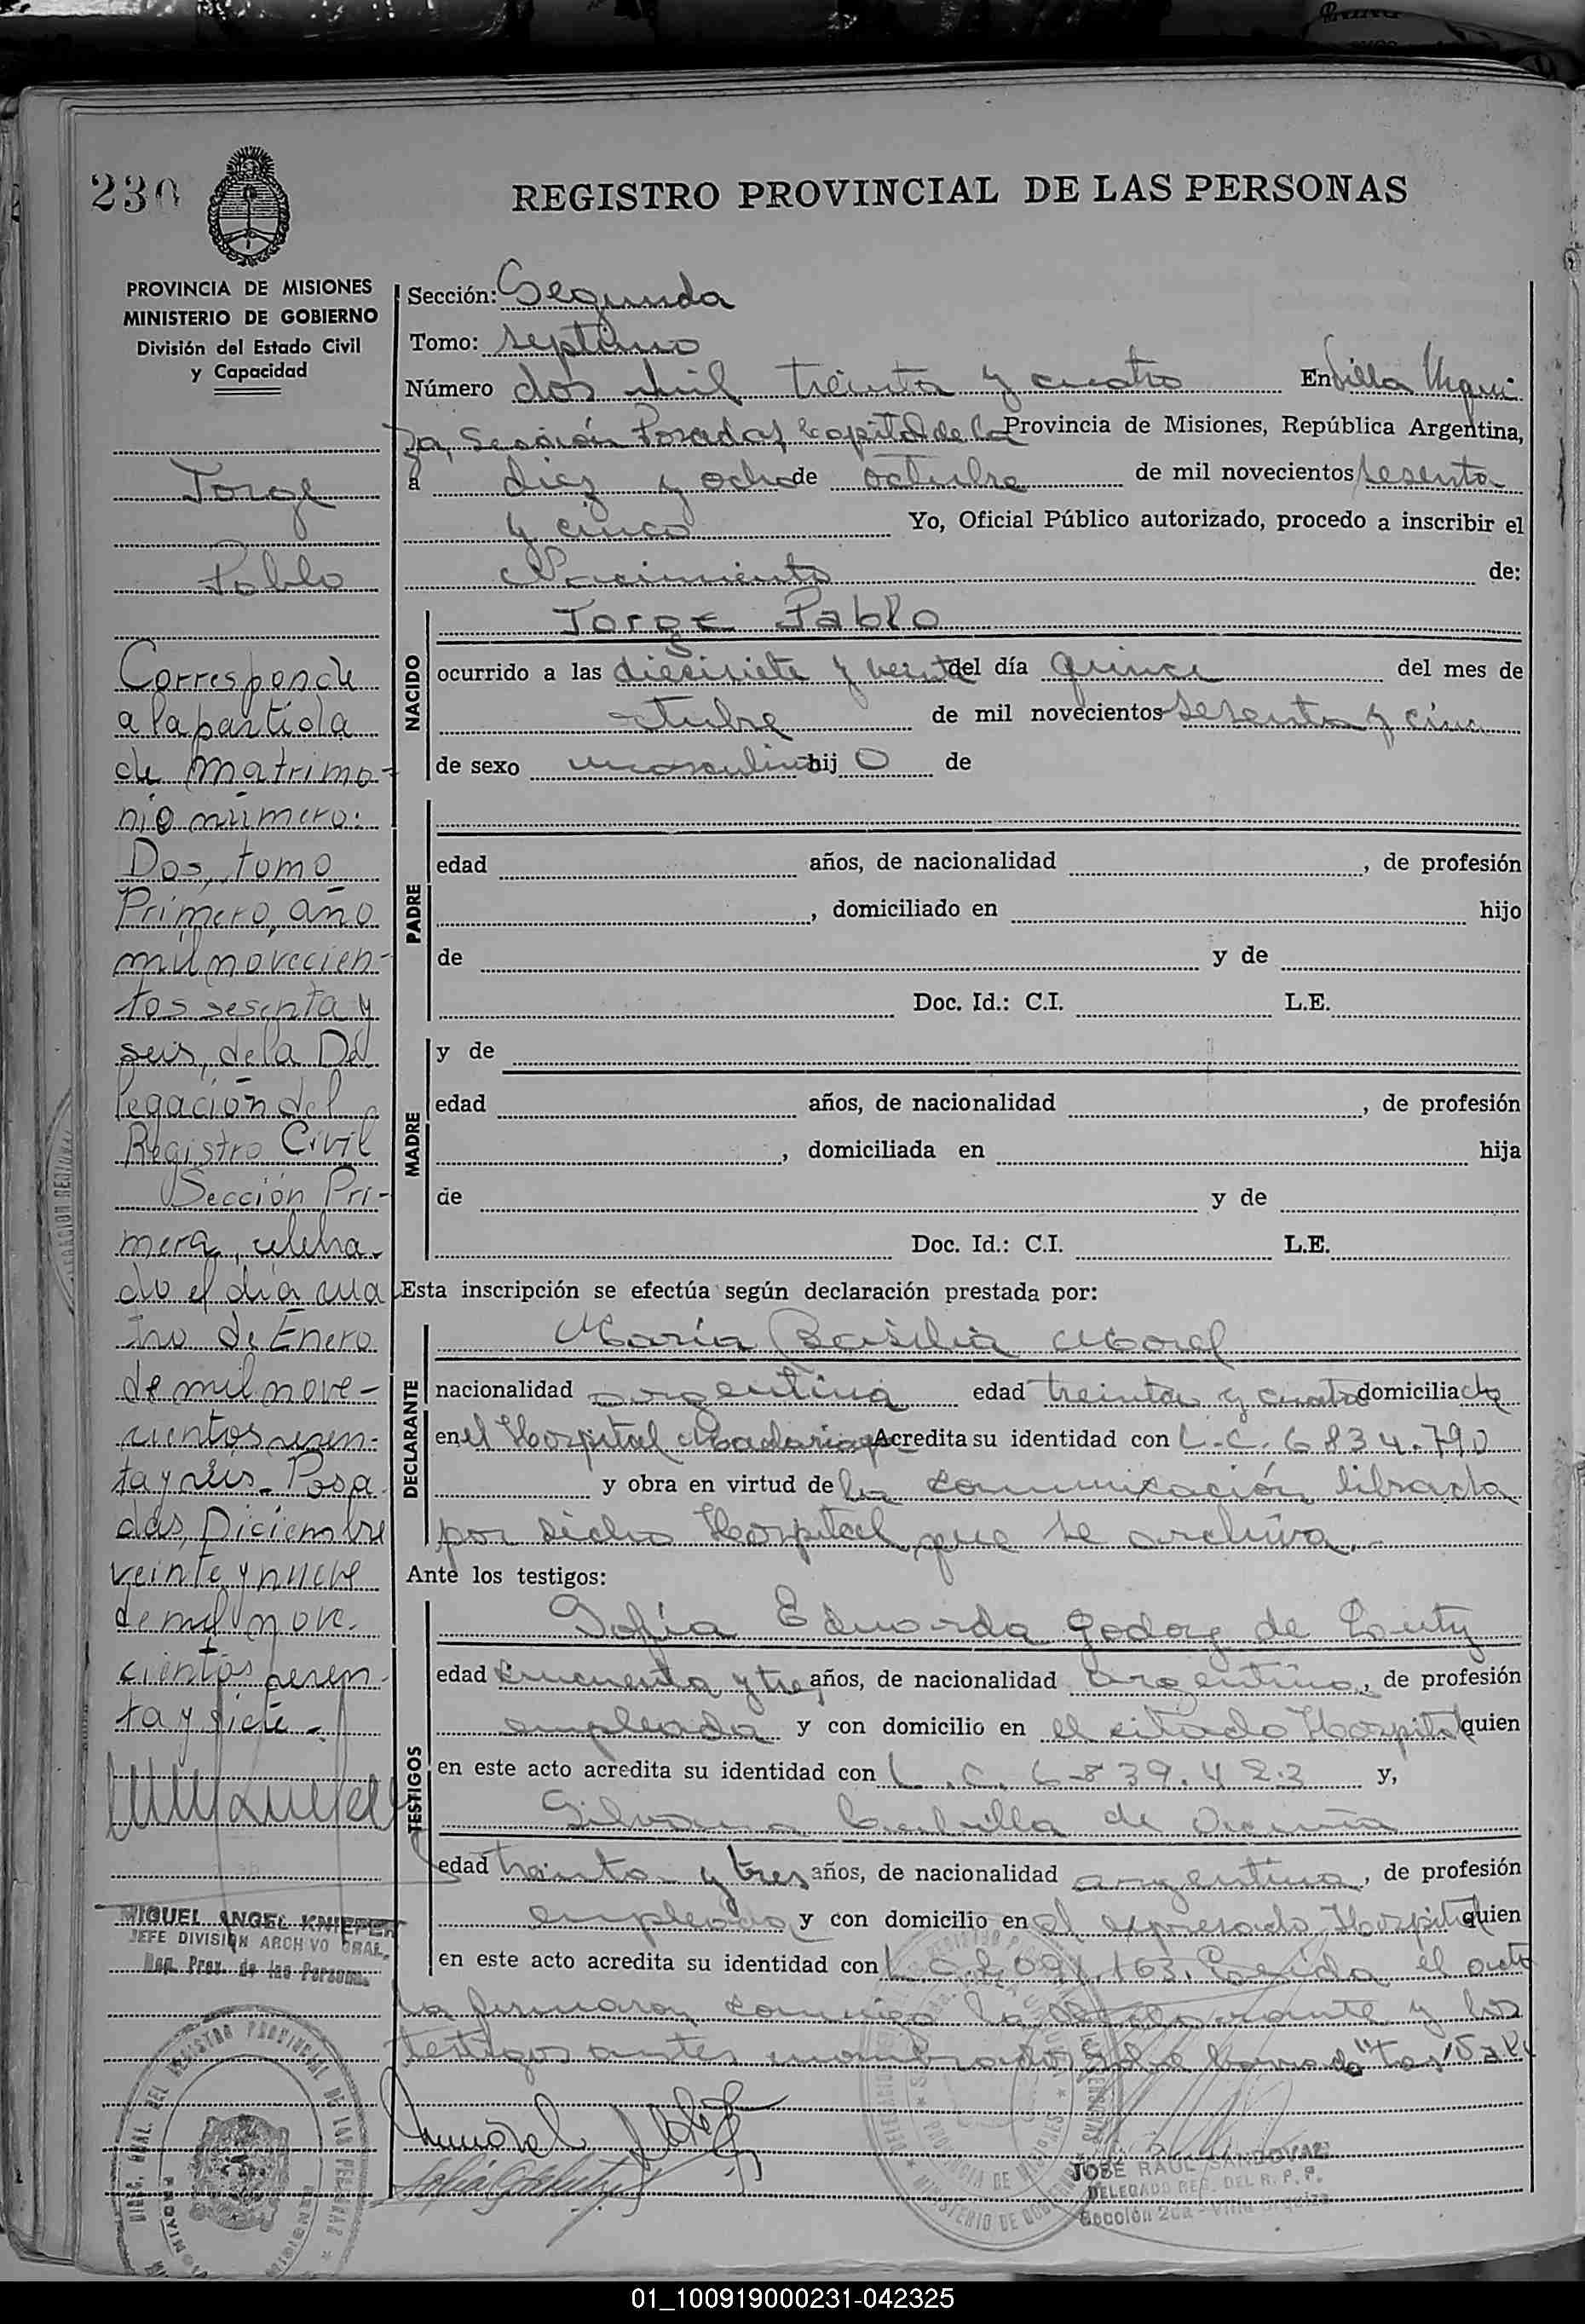 230
REGISTRO PROVINCIAL DE LAS PERSONAS
PROVINCIA DE MISIONES
MINISTERIO DE GOBIERNO
División del Estado Civil
y Capacidad
Jorge
Pablo
Corresponde
a la partida
de matrimo-
nio número:
Dos, tomo
Primero, año
mil novecien-
tos sesenta y
seis, de la De
legación del
Registro Civil
Sección Pri-
mera, celebra-
do el día cua
tro de Enero
de mil nove-
cientos sesen-
ta y seis. Posa
das, Diciembre
veinte y nueve
de mil nove-
cientos sesen-
ta y siete.-
MIGUEL ANGEL KNIEPER
JEFE DIVISIÓN ARCHIVO GRAL.
Reg. Prov. de las Personas
Sección: Segunda
Tomo: septimo
Número dos mil treinta y cuatro En Villa Urqui
za, Sección Posadas Capital de la Provincia de Misiones, República Argentina,
a diez y ocho de octubre de mil novecientos sesenta
y cinco Yo, Oficial Público autorizado, procedo a inscribir el
Nacimiento de:
NACIDO
Jorge Pablo
ocurrido a las diecisiete y veinte del día quince del mes de
octubre de mil novecientos sesenta y cinco
de sexo masculino hij o de
PADRE
edad años, de nacionalidad , de profesión
, domiciliado en hijo
de y de
Doc. Id.: C.I. L.E.
MADRE
y de
edad años, de nacionalidad , de profesión
, domiciliada en hija
de y de
Doc. Id.: C.I. L.E.
Esta inscripción se efectúa según declaración prestada por:
DECLARANTE
María Basilia Morel
nacionalidad argentina edad treinta y cuatro domiciliada
en el Hospital Madariaga Acredita su identidad con L.C. 6834.790
y obra en virtud de la comunicación librada
por dicho Hospital que se archiva.-
Ante los testigos:
TESTIGOS
Sofía Eduarda Godoy de
edad cincuenta y tres años, de nacionalidad argentina, de profesión
empleada y con domicilio en el citado Hospital quien
en este acto acredita su identidad con L.C. 6839.423 y,
Silvana de
edad treinta y tres años, de nacionalidad argentina, de profesión
empleada y con domicilio en el expresado Hospital quien
en este acto acredita su identidad con Leída el acta
la firmaron conmigo la declarante y los
testigos antes nombrados
JOSÉ RAUL SANDOVAL
DELEGADO REG. DEL R. P. P.
Sección 2da - Villa Urquiza
01_100919000231-042325